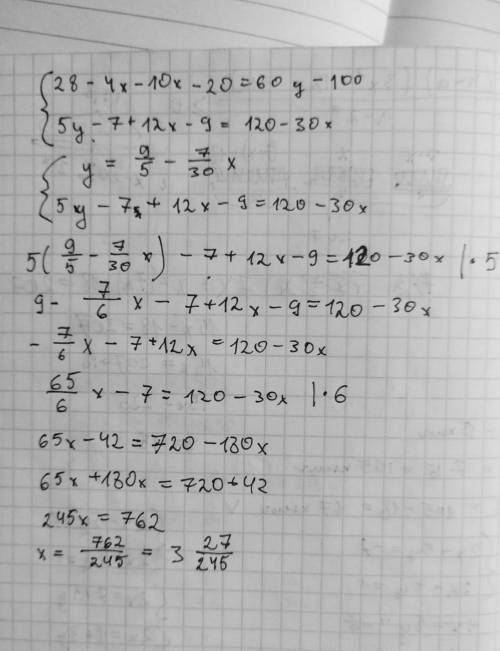 { 28 - 4x - 10x - 20 = 60y - 100
5y - 7 + 12x - 9 = 120 - 30x
{ y = 9/5 - 7/30 x
5y - 7 + 12x - 9 = 120 - 30x
5(9/5 - 7/30 x) - 7 + 12x - 9 = 120 - 30x |·5
9 - 7/6 x - 7 + 12x - 9 = 120 - 30x
- 7/6 x - 7 + 12x = 120 - 30x
65/6 x - 7 = 120 - 30x |·6
65x - 42 = 720 - 180x
65x + 180x = 720 + 42
245x = 762
x = 762/245 = 3 27/245